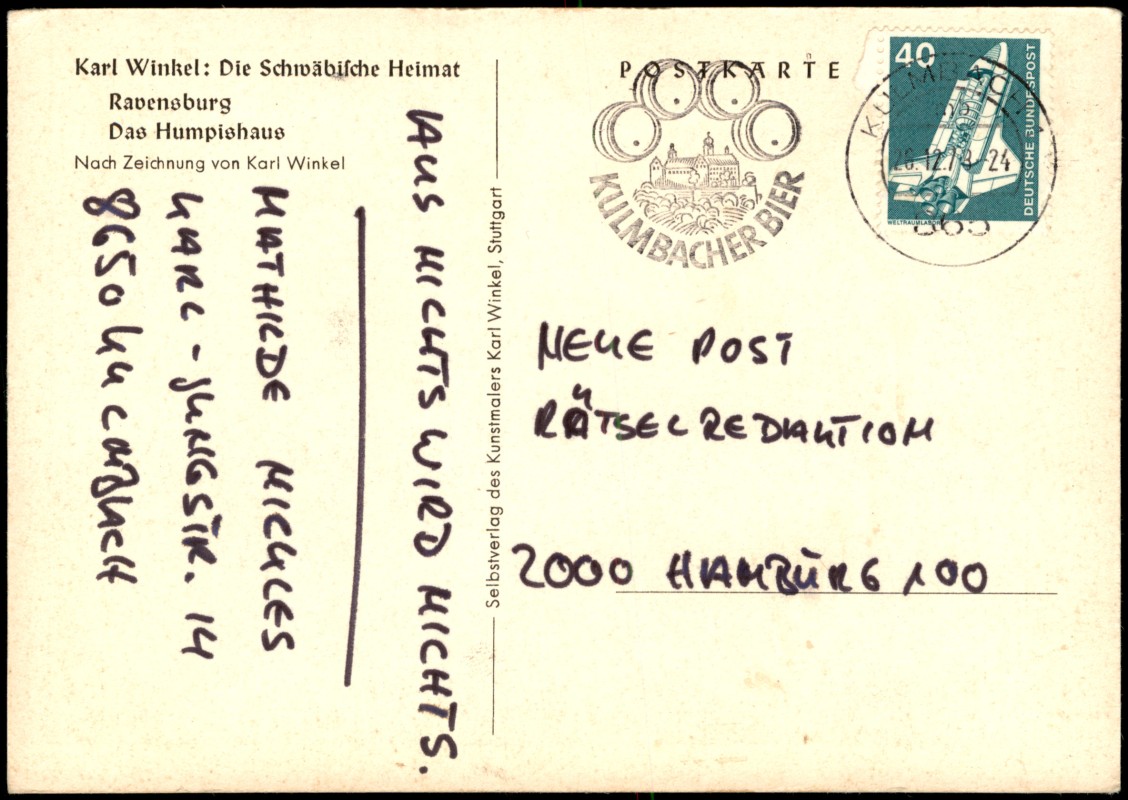 Karl Winkel: Die Schwäbische Heimat
Ravensburg
Das Humpishaus
Nach Zeichnung von Karl Winkel
POSTKARTE
KULMBACHER BIER
40
DEUTSCHE BUNDESPOST
WELTRAUMLABOR
24
865
AUS NICHTS WIRD NICHTS.
MATHILDE
KARL-JUNGSTR. 14
8650 KULMBACH
Selbstverlag des Kunstmalers Karl Winkel, Stuttgart
NEUE POST
RÄTSELREDAKTION
2000 HAMBURG 100